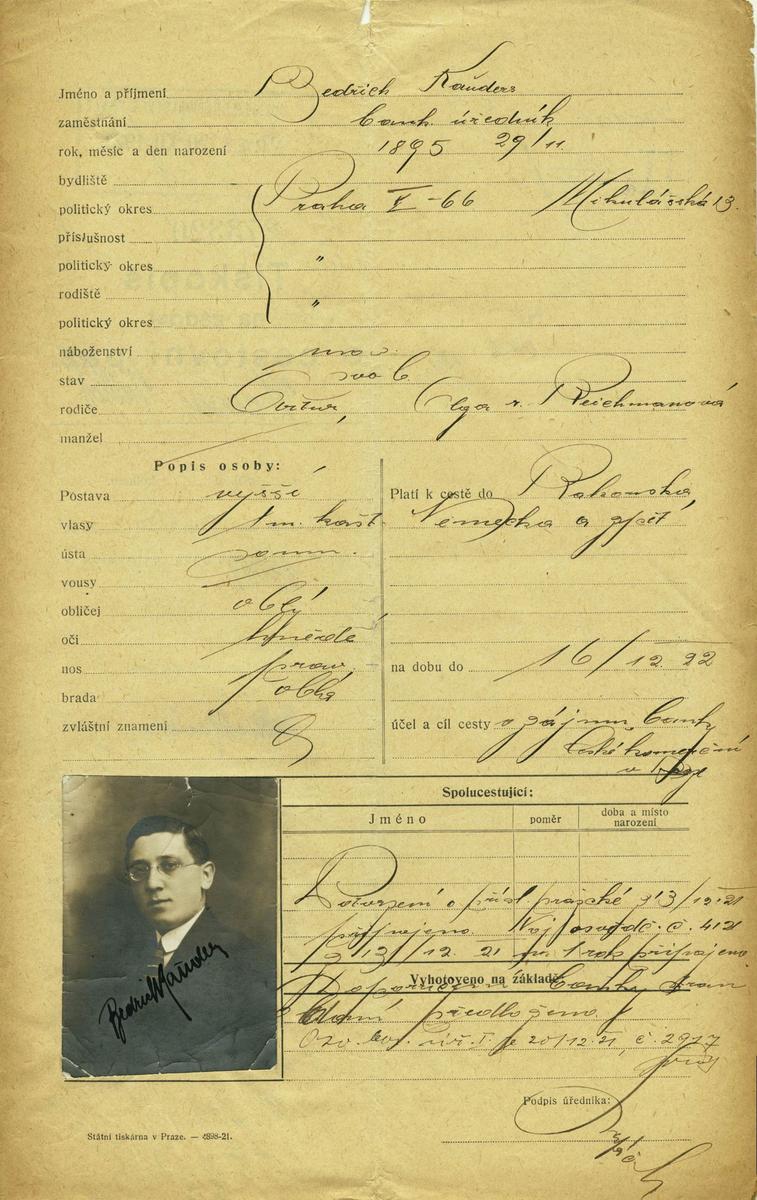 Jméno a příjmení Bedřich Kauders
zaměstnání bank. úředník
rok, měsíc a den narození 1895 29/11.
bydliště
politický okres Praha V-66 Mikulášská 13.
příslušnost
politický okres "
rodiště "
politický okres
náboženství
stav svob.
rodiče Artur, Olga r. Reichmanová
manžel
Popis osoby:
Postava vyšší
vlasy tm. kašt.
ústa soum.
vousy
obličej oblý
oči hnědé
nos prav.
brada oblá
zvláštní znamení
Platí k cestě do Rakouska,
Německa a zpět
na dobu do 16/12. 22
účel a cíl cesty v zájmu banky
České komerční
v Praze
Spolucestující:
Jméno poměr doba a místo narození
Potvrzení o přísl. pražské z 13/12. 21
připojeno. Voj. osvědč. č. 421
z 13/12. 21 na 1 rok připojeno
Vyhotoveno na základě
Doporučení banky
předloženo.
20/12. 21, č. 2977
Bedrich Kauders
Podpis úředníka:
Státní tiskárna v Praze. — 4898-21.